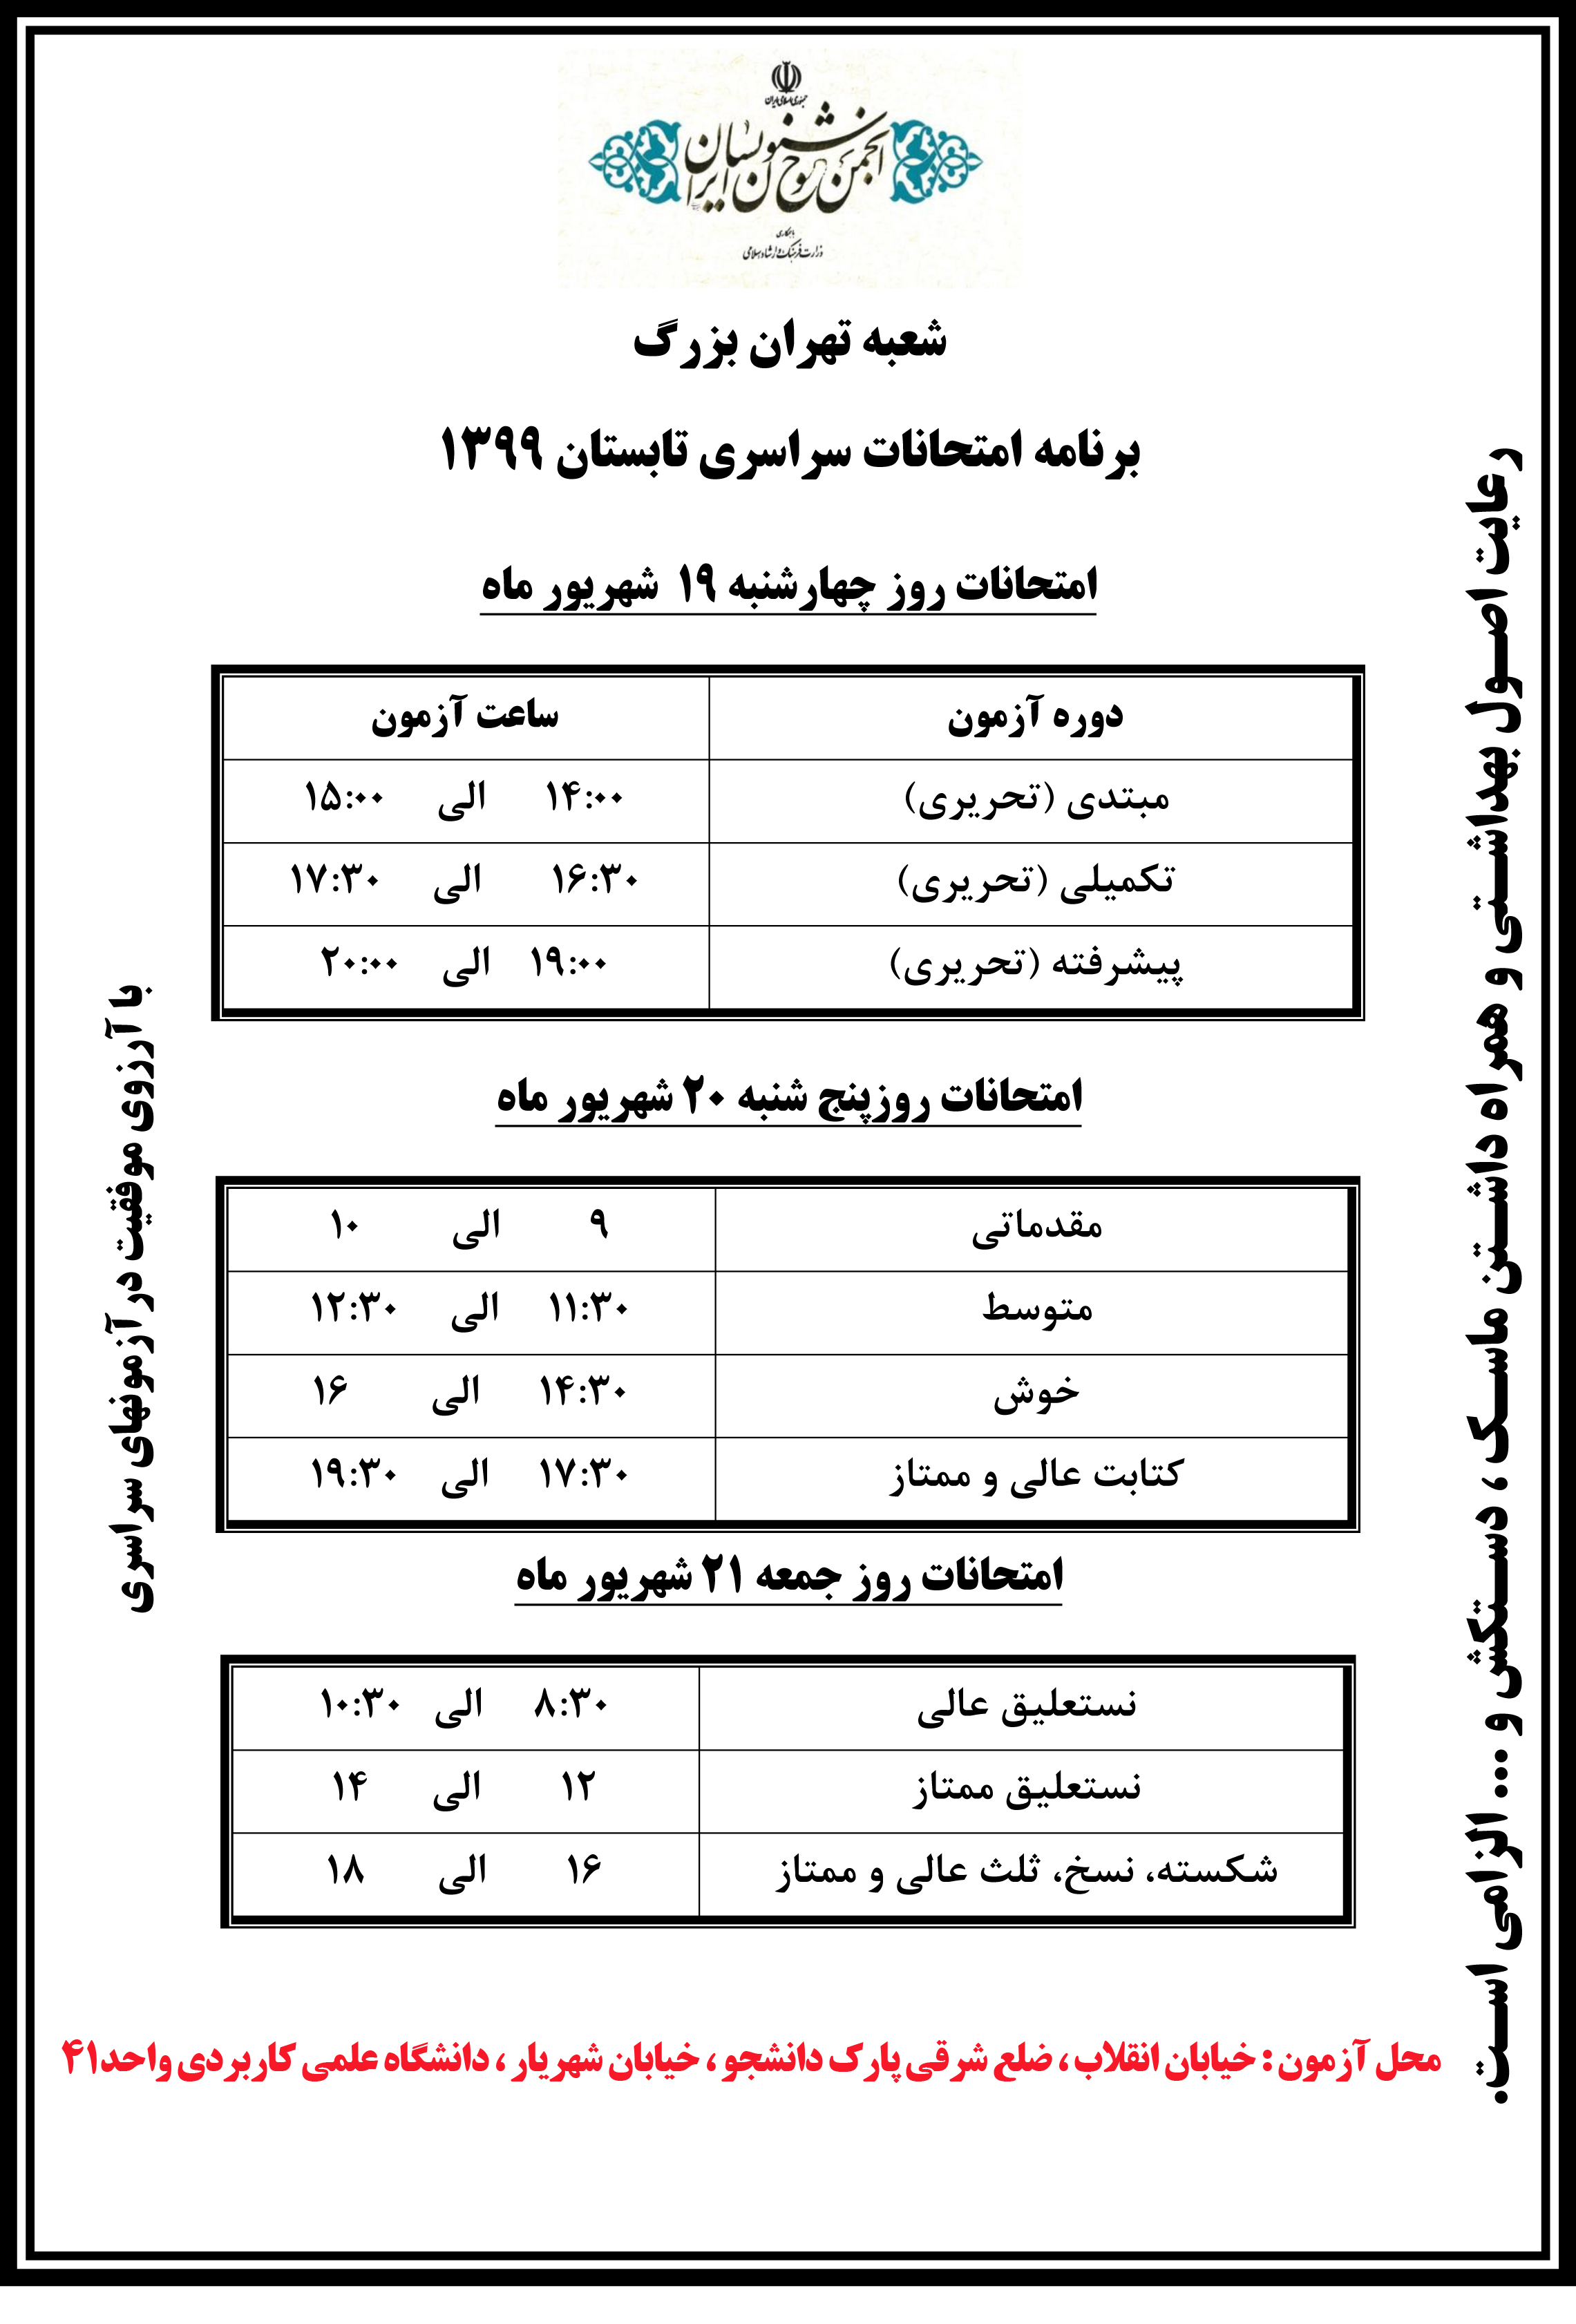 جمهوری اسلامی ایران
انجمن خوشنویسان ایران
با همکاری
وزارت فرهنگ و ارشاد اسلامی
شعبه تهران بزرگ
برنامه امتحانات سراسری تابستان ۱۳۹۹
امتحانات روز چهارشنبه ۱۹ شهریور ماه
دوره آزمون ساعت آزمون
مبتدی (تحریری) ۱۴:۰۰ الی ۱۵:۰۰
تکمیلی (تحریری) ۱۶:۳۰ الی ۱۷:۳۰
پیشرفته (تحریری) ۱۹:۰۰ الی ۲۰:۰۰
امتحانات روزپنج شنبه ۲۰ شهریور ماه
مقدماتی ۹ الی ۱۰
متوسط ۱۱:۳۰ الی ۱۲:۳۰
خوش ۱۴:۳۰ الی ۱۶
کتابت عالی و ممتاز ۱۷:۳۰ الی ۱۹:۳۰
امتحانات روز جمعه ۲۱ شهریور ماه
نستعلیق عالی ۸:۳۰ الی ۱۰:۳۰
نستعلیق ممتاز ۱۲ الی ۱۴
شکسته، نسخ، ثلث عالی و ممتاز ۱۶ الی ۱۸
محل آزمون : خیابان انقلاب ، ضلع شرقی پارک دانشجو ، خیابان شهریار ، دانشگاه علمی کاربردی واحد۴۱
رعایت اصـول بهداشـتی و همراه داشـتن ماسـک ، دسـتکش و ... الزامی اسـت.
با آرزوی موفقیت در آزمونهای سراسری